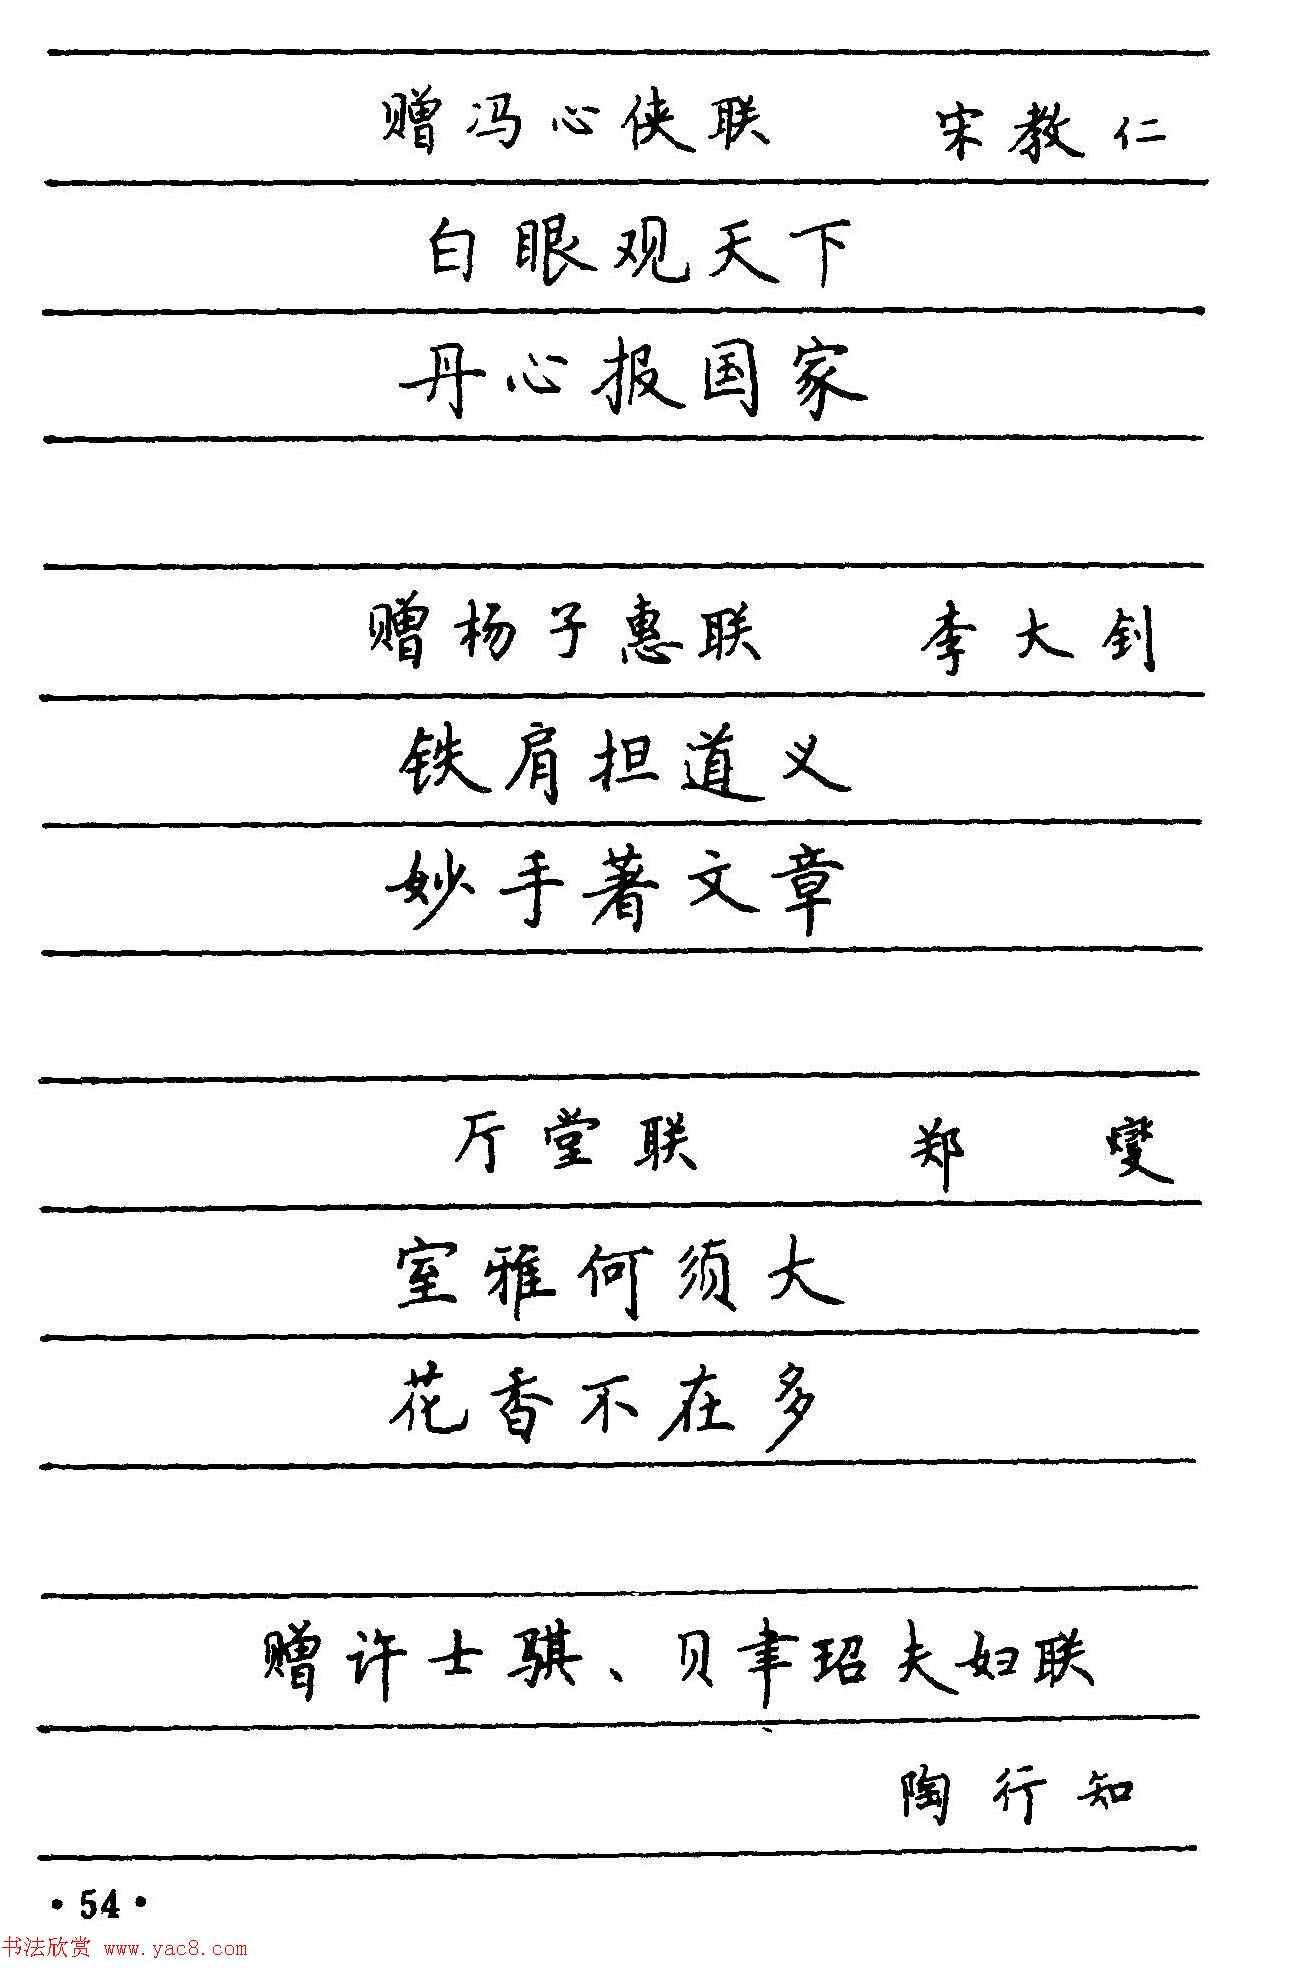 赠冯心侠联 宋教仁
白眼观天下
丹心报国家
赠杨子惠联 李大钊
铁肩担道义
妙手著文章
厅堂联 郑燮
室雅何须大
花香不在多
赠许士骐、贝聿玿夫妇联
陶行知
·54·
书法欣赏 www.yac8.com